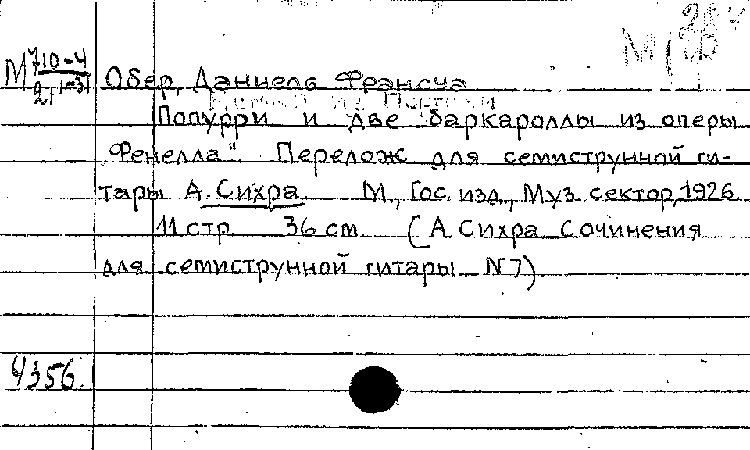 Обер, Даниель Франсуа
Попурри и две баркароллы из оперы
„Фенелла". Перелож для семиструнной ги-
тары А. Сихра М., Гос. изд., Муз. сектор, 1926
11 стр 36 см (А Сихра Сочинения
для семиструнной гитары N 7)
4356.